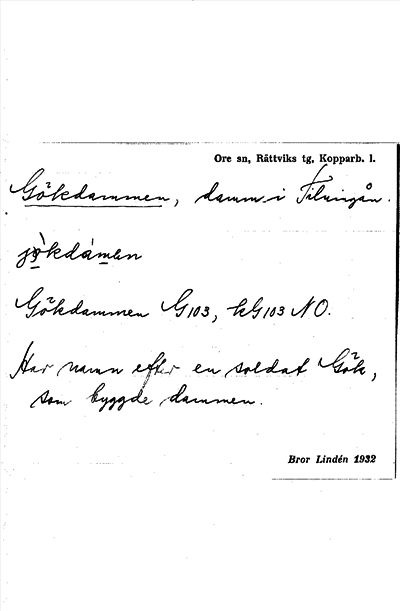 Ore sn, Rättviks tg, Kopparb. l.
Gökdammen, damm i Tilningån.
jö̀kdámen
Gökdammen G103, kG103 NO.
Har namn efter en soldat Gök,
som byggde dammen.
Bror Lindén 1932